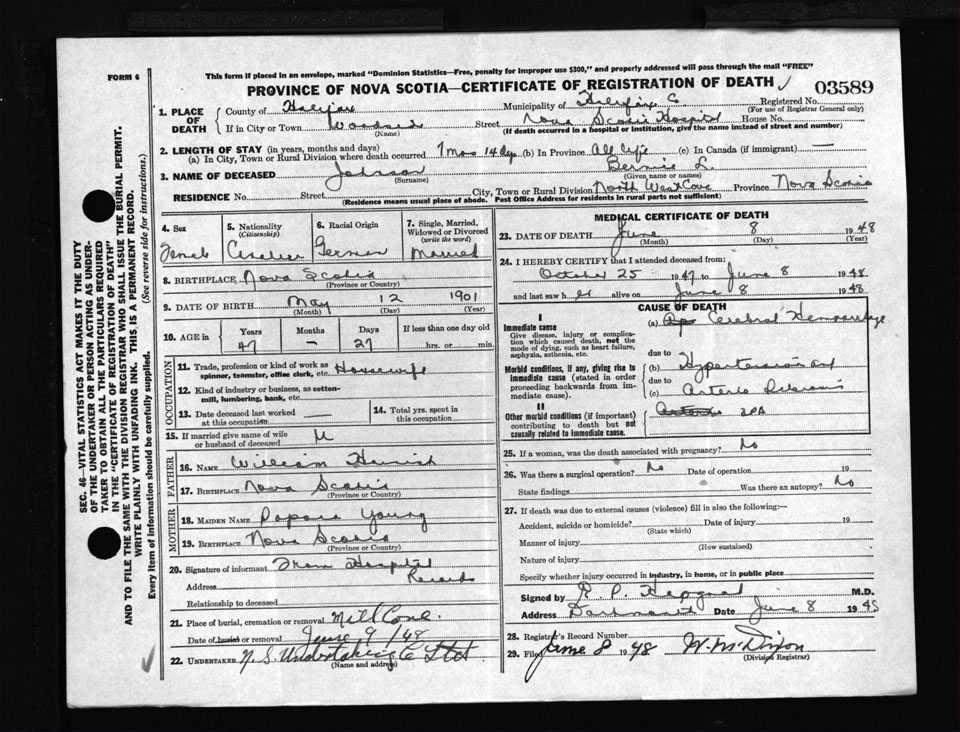 FORM 6
This form if placed in an envelope, marked "Dominion Statistics—Free, penalty for improper use $300," and properly addressed will pass through the mail "FREE"
PROVINCE OF NOVA SCOTIA—CERTIFICATE OF REGISTRATION OF DEATH
03589
1. PLACE OF DEATH
County of Halifax Municipality of Halifax C. Registered No.
(For use of Registrar General only)
If in City or Town Woodside Street Nova Scotia Hospital House No.
(Name) (If death occurred in a hospital or institution, give the name instead of street and number)
2. LENGTH OF STAY (in years, months and days)
(a) In City, Town or Rural Division where death occurred 7 mos 14 dys (b) In Province All life (c) In Canada (if immigrant) —
3. NAME OF DECEASED Johnson Bernie L.
(Surname) (Given name or names)
RESIDENCE No. Street City, Town or Rural Division North West Cove Province Nova Scotia
(Residence means usual place of abode. Post Office Address for residents in rural parts not sufficient)
SEC. 46—VITAL STATISTICS ACT MAKES IT THE DUTY
OF THE UNDERTAKER OR PERSON ACTING AS UNDER-
TAKER TO OBTAIN ALL THE PARTICULARS REQUIRED
IN THE "CERTIFICATE OF REGISTRATION OF DEATH"
AND TO FILE THE SAME WITH THE DIVISION REGISTRAR WHO SHALL ISSUE THE BURIAL PERMIT.
WRITE PLAINLY WITH UNFADING INK. THIS IS A PERMANENT RECORD.
Every item of information should be carefully supplied. (See reverse side for instructions.)
4. Sex
Female
5. Nationality
(Citizenship)
Canadian
6. Racial Origin
German
7. Single, Married, Widowed or Divorced
(write the word)
Married
8. BIRTHPLACE Nova Scotia
(Province or Country)
9. DATE OF BIRTH May 12 1901
(Month) (Day) (Year)
10. AGE in Years Months Days If less than one day old
47 — 27 hrs. or min.
OCCUPATION
11. Trade, profession or kind of work as
spinner, teamster, office clerk, etc. Housewife
12. Kind of industry or business, as cotton-
mill, lumbering, bank, etc.
13. Date deceased last worked
at this occupation —
14. Total yrs. spent in
this occupation
15. If married give name of wife
or husband of deceased
FATHER
16. NAME William
17. BIRTHPLACE Nova Scotia
(Province or Country)
MOTHER
18. MAIDEN NAME Young
19. BIRTHPLACE Nova Scotia
(Province or Country)
20. Signature of informant From Hospital
Records
Address
Relationship to deceased
21. Place of burial, cremation or removal Mill Cove.
Date of burial or removal June 9/48
22. UNDERTAKER N.S. Undertaking C Ltd
(Name and address)
MEDICAL CERTIFICATE OF DEATH
23. DATE OF DEATH June 8 1948
(Month) (Day) (Year)
24. I HEREBY CERTIFY that I attended deceased from:
October 25 1947 to June 8 1948
and last saw her alive on June 8 1948
CAUSE OF DEATH
I
Immediate cause
Give disease, injury or complica-
tion which caused death, not the
mode of dying, such as heart failure,
asphyxia, asthenia, etc.
(a) Cerebral Hemorrhage
due to
Morbid conditions, if any, giving rise to
immediate cause (stated in order
proceeding backwards from im-
mediate cause).
(b) Hypertension and
due to
(c) Arterio Sclerosis
II
Other morbid conditions (if important)
contributing to death but not
causally related to immediate cause.
25. If a woman, was the death associated with pregnancy? No
26. Was there a surgical operation? No Date of operation 19
State findings Was there an autopsy? No
27. If death was due to external causes (violence) fill in also the following:—
Accident, suicide or homicide? Date of injury 19
(State which)
Manner of injury
(How sustained)
Nature of injury
Specify whether injury occurred in industry, in home, or in public place
Signed by R. P. M.D.
Address Dartmouth Date June 8 1948
28. Registrar's Record Number
29. Filed June 8 1948 Dixon
(Division Registrar)